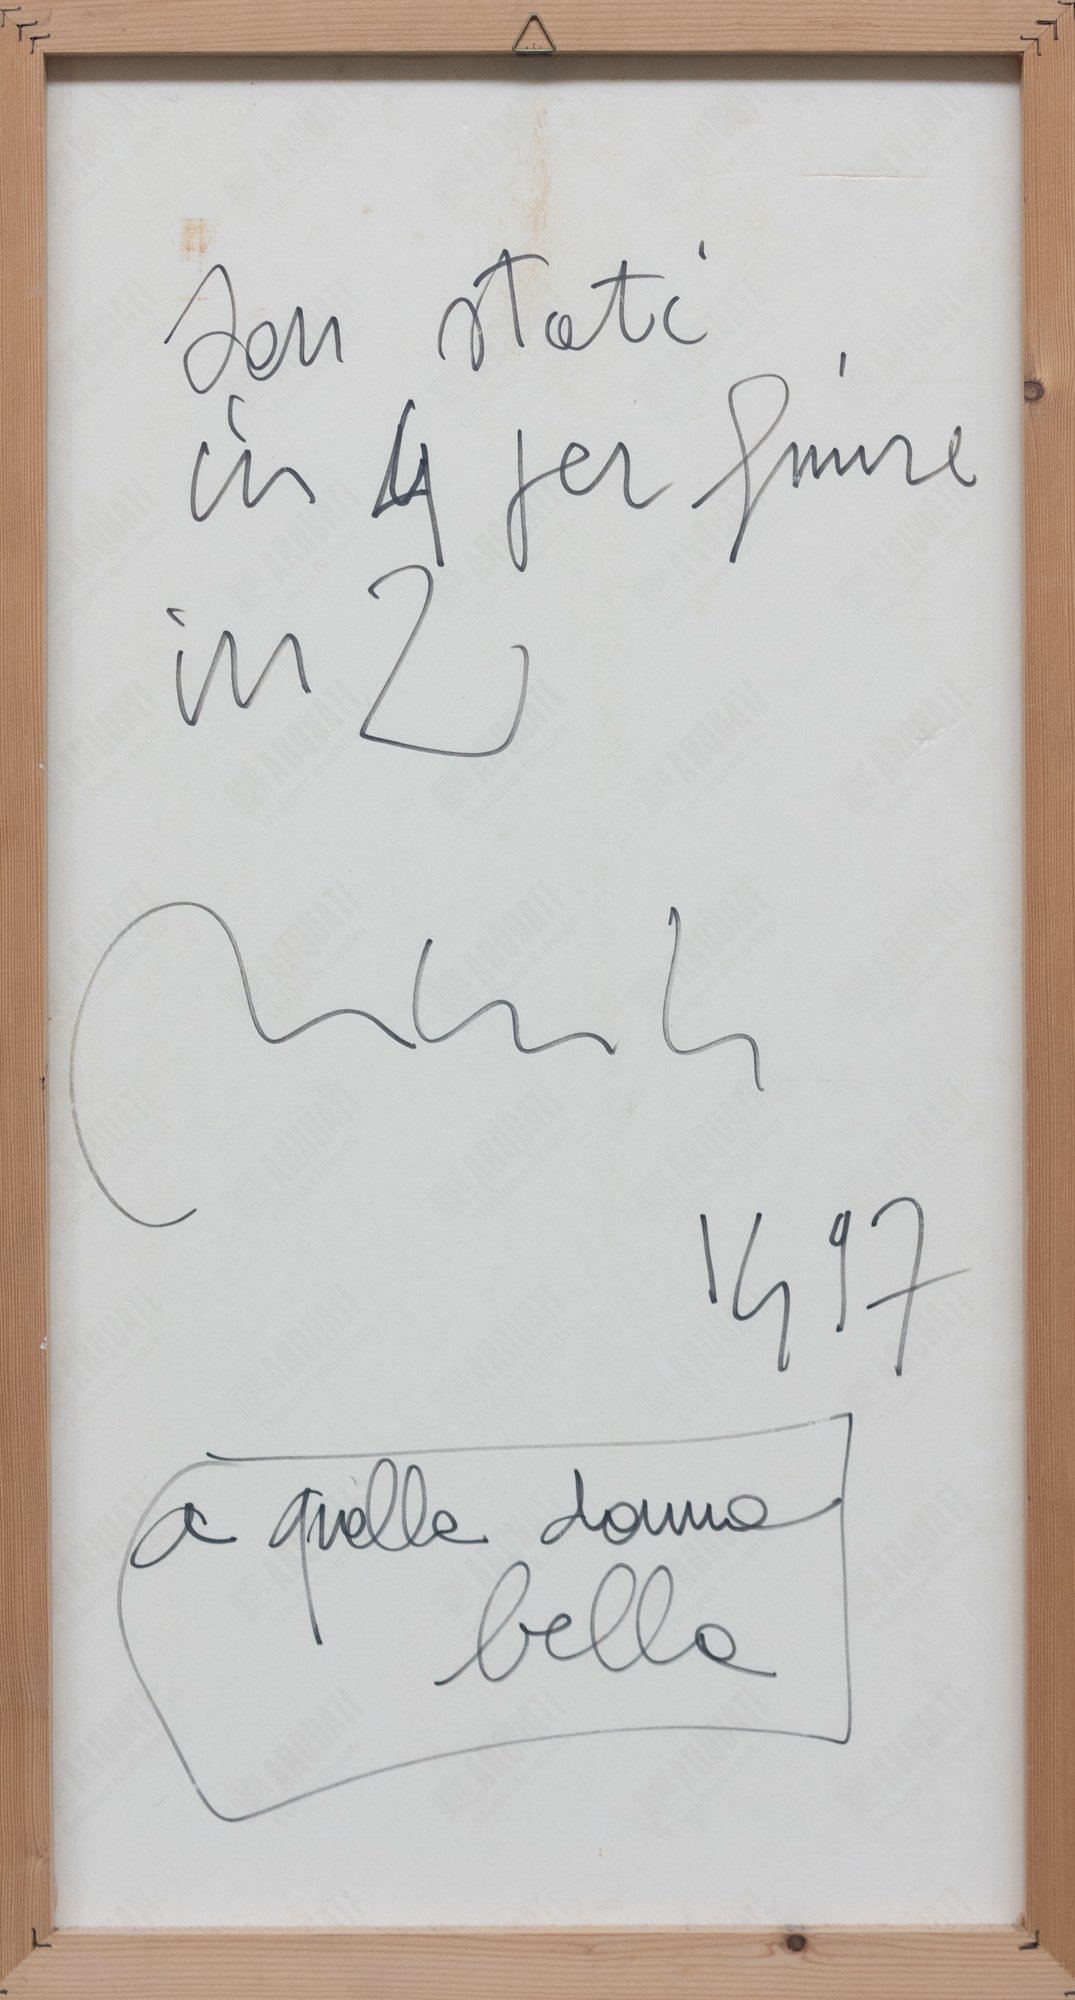 Son stati
in 4 per finire
in 2
14 97
a quella donna
bella
ARQUATI